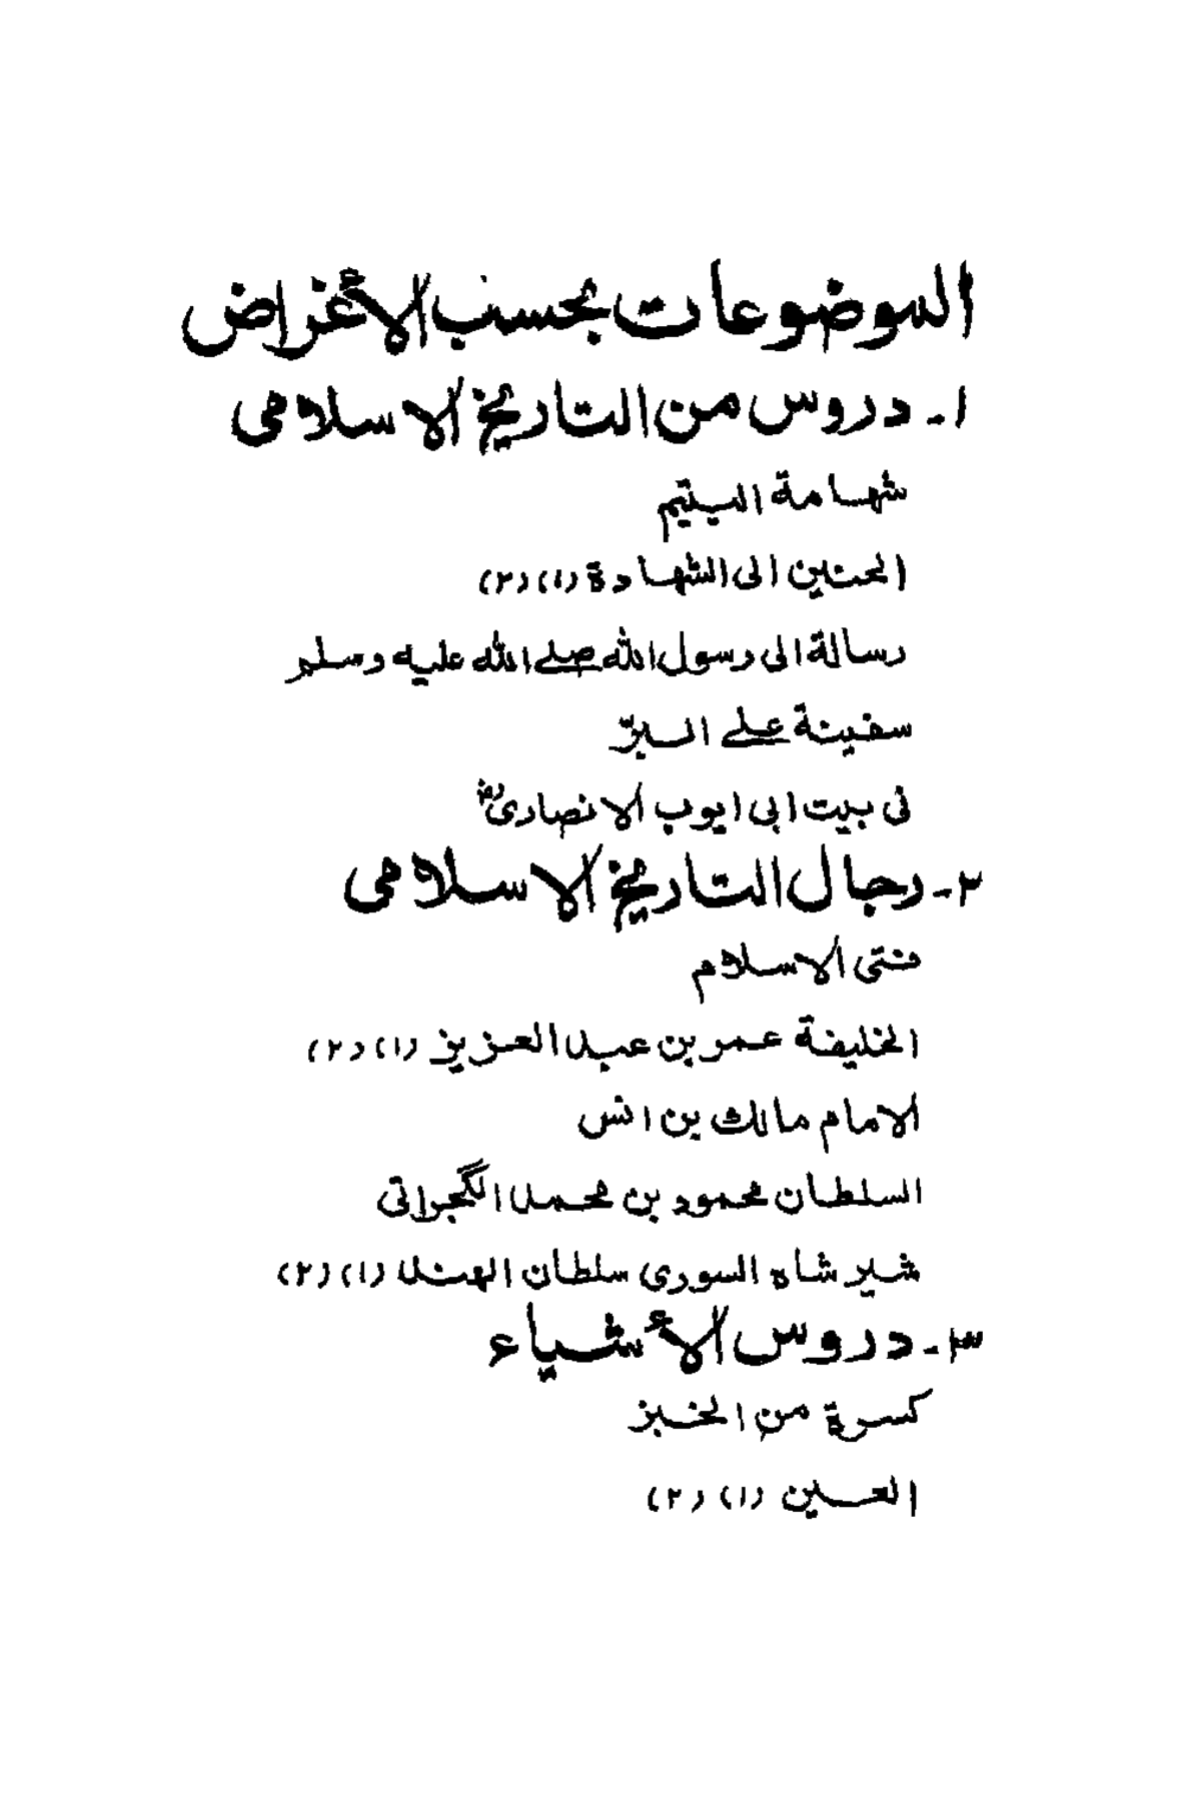 الموضوعات بحسب الأغراض
١- دروس من التاريخ الاسلامى
شهامة اليتيم
الحنين الى الشهادة (١) (٢)
رسالة الى رسول الله صلى الله عليه وسلم
سفينة على البرّ
فى بيت ابى ايوب الانصارىؓ
٢- رجال التاريخ الاسلامى
فتى الاسلام
الخليفة عمر بن عبد العزيز (١) (٢)
الامام مالك بن انس
السلطان محمود بن محمد الگجراتى
شير شاه السورى سلطان الهند (١) (٢)
٣- دروس الأشياء
كسرة من الخبز
العين (١) (٢)